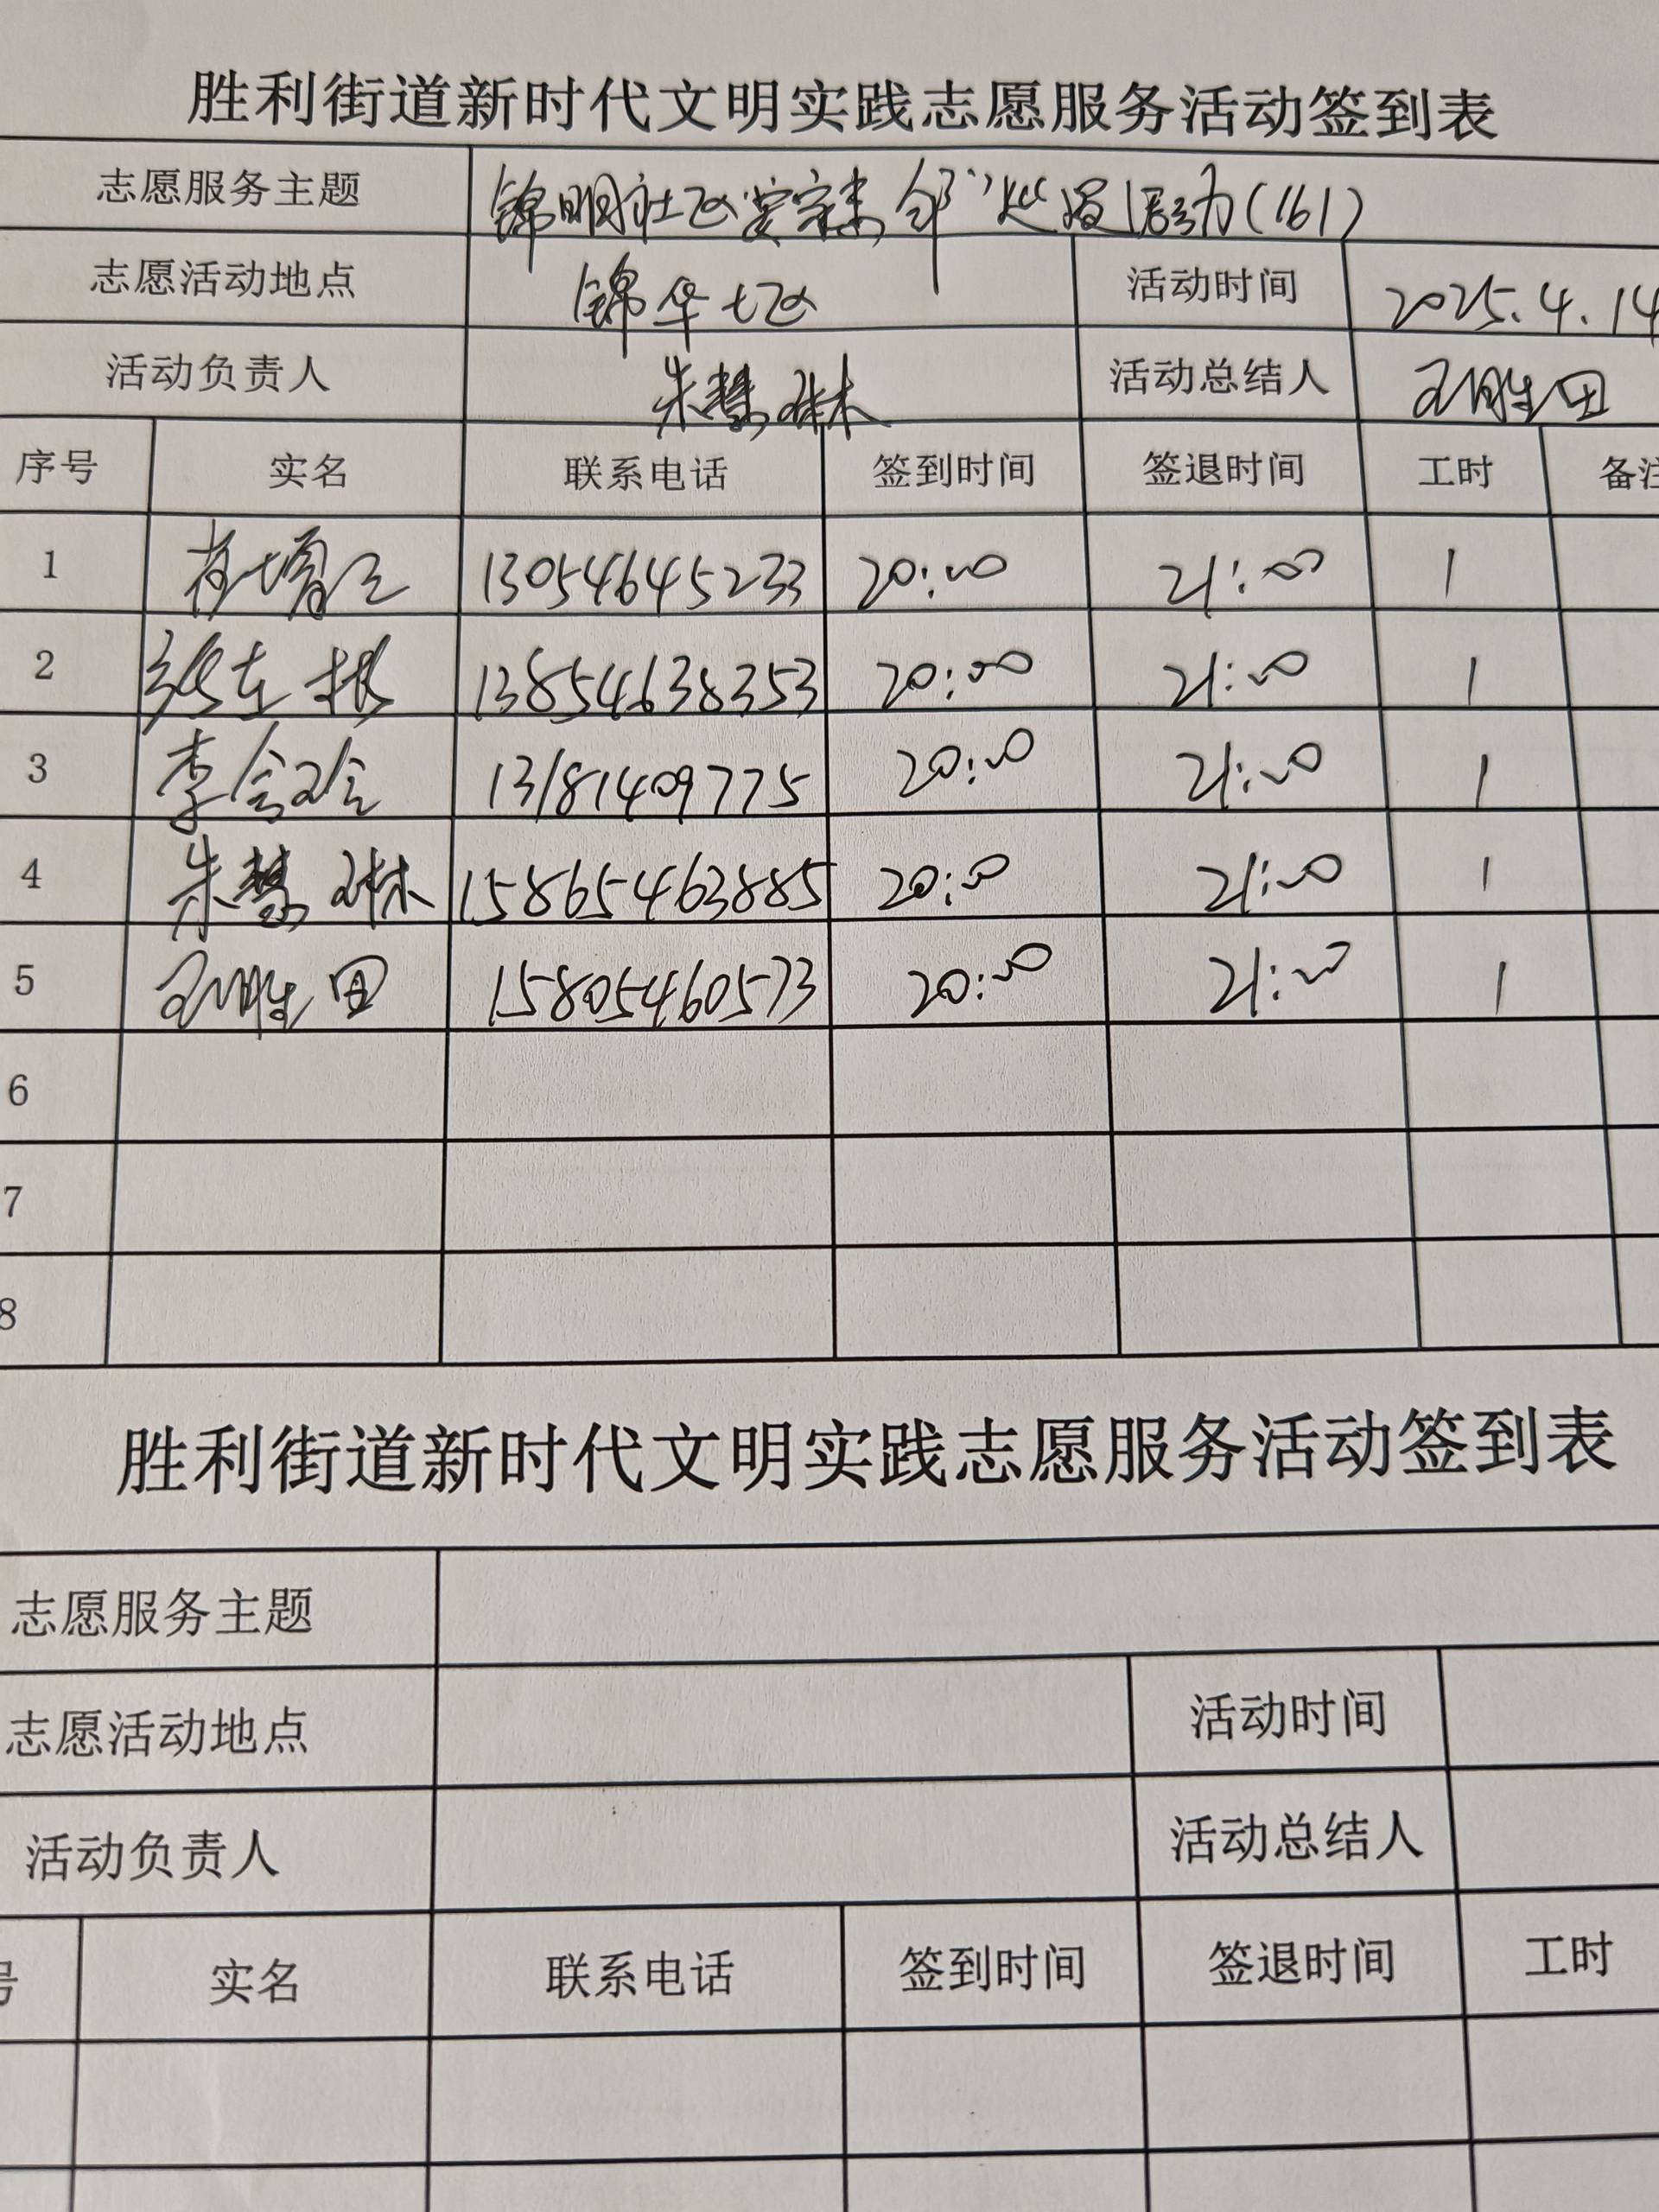 胜利街道新时代文明实践志愿服务活动签到表
志愿服务主题 锦明社区 活动(161)
志愿活动地点 锦华七区 活动时间 2025.4.14
活动负责人 朱慧琳 活动总结人 王胜田
序号 实名 联系电话 签到时间 签退时间 工时 备注
1 13054645233 20:00 21:00 1
2 13854638353 20:00 21:00 1
3 李会玲 13181409775 20:00 21:00 1
4 朱慧琳 15865463885 20:00 21:00 1
5 王胜田 15805460573 20:00 21:00 1
6
7
8
胜利街道新时代文明实践志愿服务活动签到表
志愿服务主题
志愿活动地点 活动时间
活动负责人 活动总结人
号 实名 联系电话 签到时间 签退时间 工时